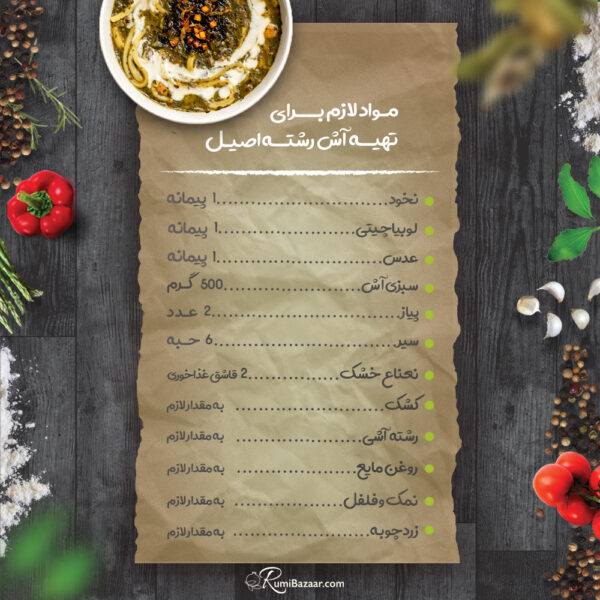 مواد لازم برای
تهیه آش رشته اصیل
نخود.............................۱ پیمانه
لوبیاچیتی.......................۱ پیمانه
عدس.............................۱ پیمانه
سبزی آش.......................500 گرم
پیاز..............................2 عدد
سیر..............................6 حبه
نعناع خشک..............2 قاشق غذاخوری
کشک.........................به مقدار لازم
رشته آشی....................به مقدار لازم
روغن مایع....................به مقدار لازم
نمک و فلفل..................به مقدار لازم
زردچوبه.......................به مقدار لازم
RumiBazaar.com